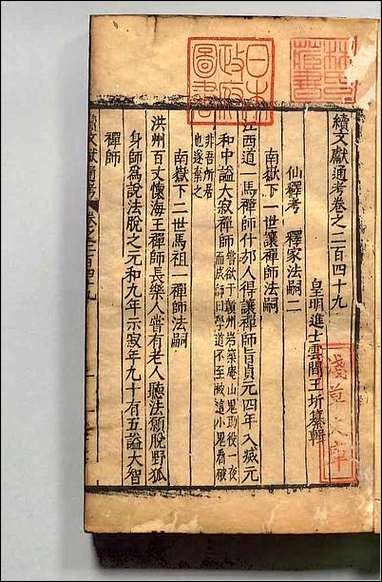 續文獻通考卷之二百四十九
皇明進士雲間王圻纂輯
仙釋考　釋家法嗣二
南嶽下一世讓禪師法嗣
江西道一馬禪師什邡人得讓禪師旨貞元四年入滅元
和中謚大寂禪師
非吾所居
也遂棄之
南嶽下二世馬祖一禪師法嗣
洪州百丈懷海王禪師長樂人嘗有老人聽法願脫野狐
身師為說法脫之元和九年示寂年九十有五謚大智
禪師
續文獻通考
卷之二百四十九
日本
政府
圖書
淺草文庫